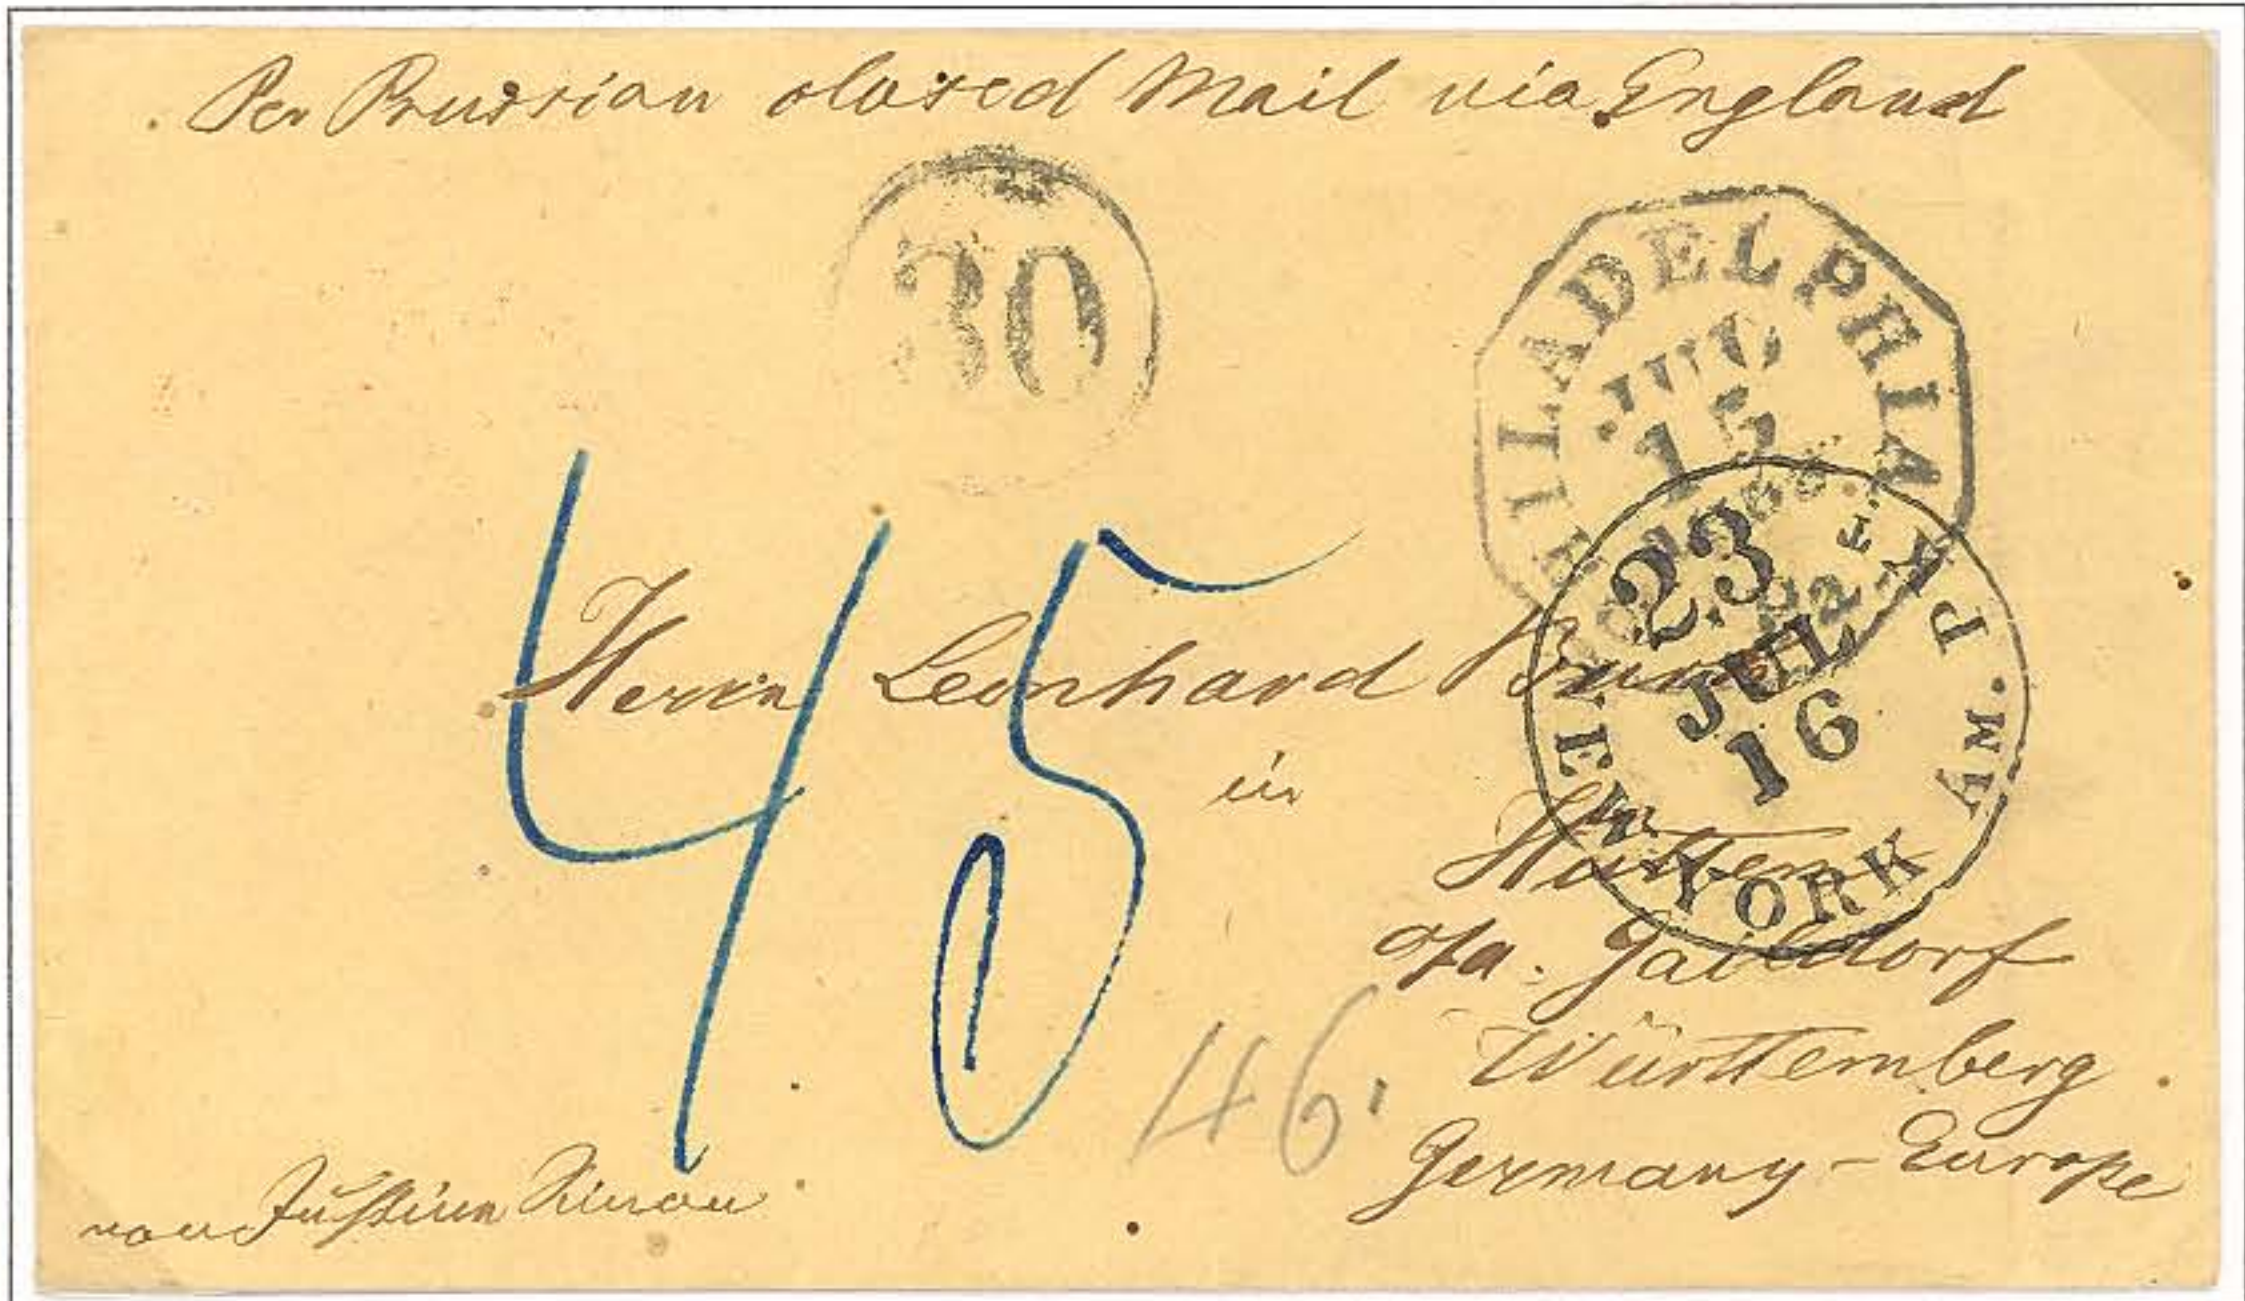 Per Prussian closed Mail via England
30
PHILADELPHIA
15
NEW YORK AM. PKT.
23
JUL
16
45
Herrn Leonhard
in
Hütten
o/a. Gaildorf
Württemberg
Germany - Europe
46
von